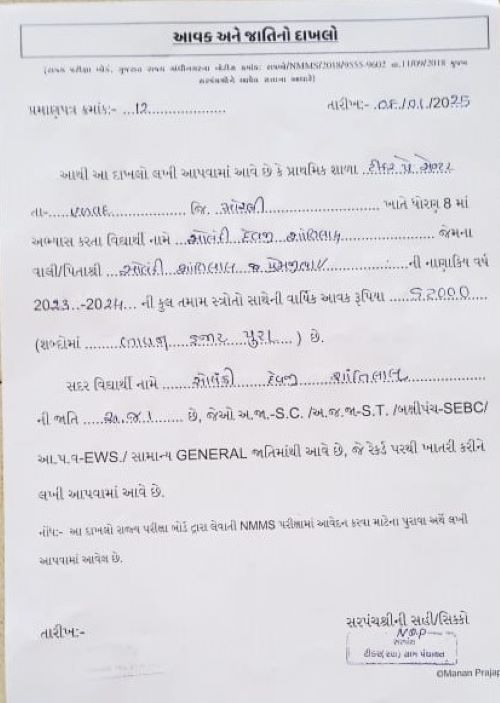 આવક અને જાતિનો દાખલો
(રાજ્ય પરીક્ષા બોર્ડ, ગુજરાત રાજ્ય ગાંધીનગરના નોટીસ ક્રમાંક: રાપબો/NMMS/2018/9555-9602 તા.11/09/2018 મુજબ
સરપંચશ્રીને આપેલ સત્તાના આધારે)
પ્રમાણપત્ર ક્રમાંક:- ...12.................... તારીખ:- .08./01./2025
આથી આ દાખલો લખી આપવામાં આવે છે કે પ્રાથમિક શાળા ટીકર પે સેન્ટર
તા- હળવદ ................ જિ. મોરબી ................ ખાતે ધોરણ 8 માં
અભ્યાસ કરતા વિદ્યાર્થી નામે ...સોલંકી દેવજી શાંતિલાલ ................ જેમના
વાલી/પિતાશ્રી સોલંકી શાંતિલાલ પ્રેમજીભાઈ ................ની નાણાકિય વર્ષ
2023..-2024... ની કુલ તમામ સ્ત્રોતો સાથેની વાર્ષિક આવક રૂપિયા .....52000
(શબ્દોમાં ........બાવન હજાર પુરા.....) છે.
સદર વિદ્યાર્થી નામે ......સોલંકી દેવજી શાંતિલાલ................
ની જાતિ .....અ.જ.1....... છે, જેઓ અ.જા.-S.C. /અ.જ.જા-S.T. /બક્ષીપંચ-SEBC/
આ.પ.વ-EWS./ સામાન્ય GENERAL જાતિમાંથી આવે છે, જે રેકર્ડ પરથી ખાતરી કરીને
લખી આપવામાં આવે છે.
નોંધ:- આ દાખલો રાજ્ય પરીક્ષા બોર્ડ દ્વારા લેવાતી NMMS પરીક્ષામાં આવેદન કરવા માટેના પુરાવા અર્થે લખી
આપવામાં આવેલ છે.
સરપંચશ્રીની સહી/સિક્કો
તારીખ:-
સરપંચ
ટીકર(રણ) ગ્રામ પંચાયત
©Manan Prajap